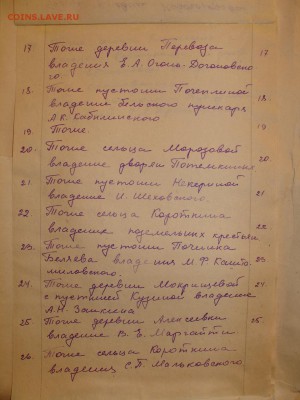 COINS.LAVE.RU
17 Тоже деревни Перевоза 17
владения Е.А. Огонь-Догоновско
го.
18. Тоже пустоши Почепиной
владение Бельского
18
А.К. Кабилинского
19. Тоже. 19.
20. Тоже сельца Морозовой
владение дворян Потемкиных 20.
21. Тоже пустоши Некериной
владение И. Шеховского. 21
22. Тоже сельца Короткина
владение крестьян 22.
23. Тоже пустоши Почепка
Беляева владения М.Ф. 23
миловского.
24. Тоже деревни Мокрищевой 24.
с пустошей Кузиной владение
А.Н. Заикина
25. Тоже деревни Алексеевки 25.
владение В.Е. Маргайти
26. Тоже сельца Короткина
владения С.П. Мальковского